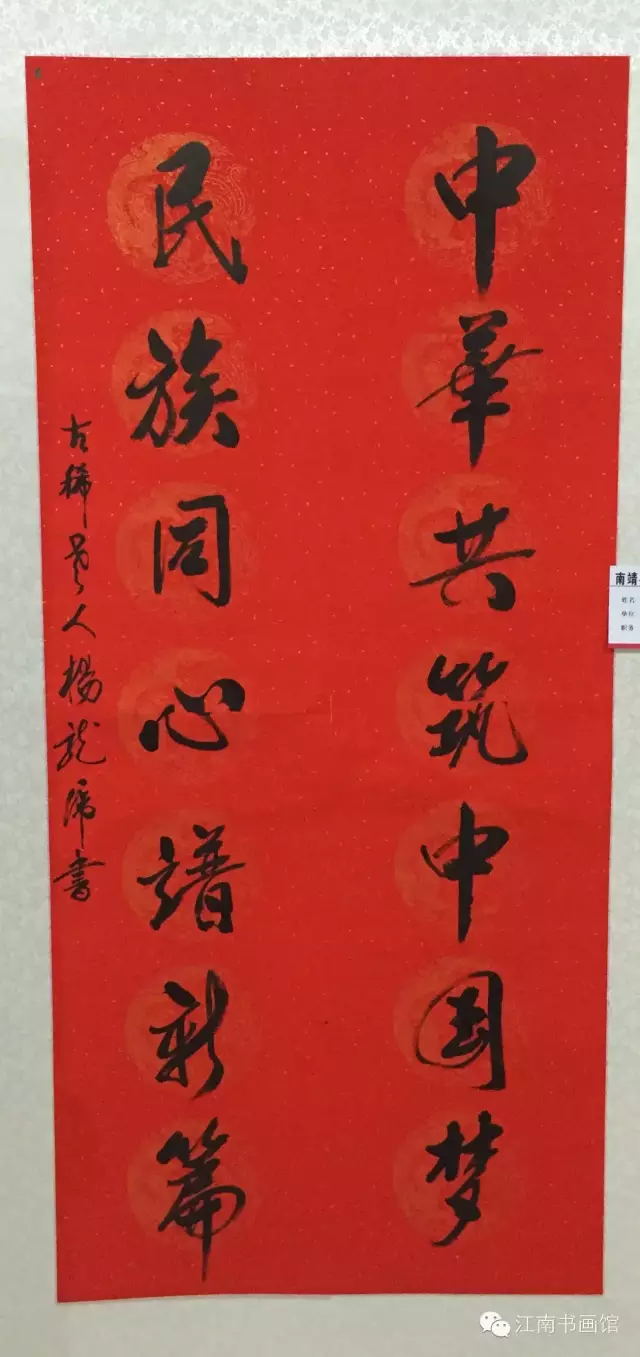 中華共筑中国梦
民族同心譜新篇
古稀老人楊龙席書
南靖
姓名
单位
职务
江南书画馆